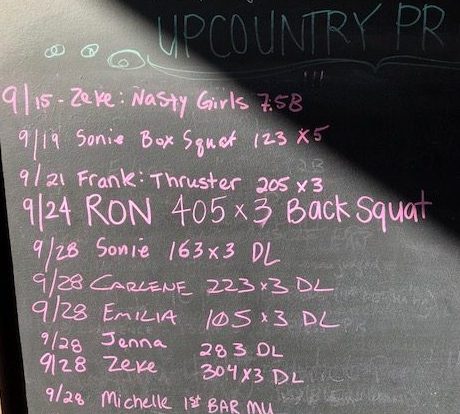 UPCOUNTRY PR
!!!
9/15 - Zeke: Nasty Girls 7:58
9/19 Sonie Box Squat 123 x5
9/21 Frank: Thruster 205 x3
9/24 RON 405 x 3 Back Squat
9/28 Sonie 163 x 3 DL
9/28 CARLENE 223 x 3 DL
9/28 EMILIA 105 x 3 DL
9/28 Jenna 283 DL
9/28 Zeke 304 x3 DL
9/28 Michelle 1st BAR MU